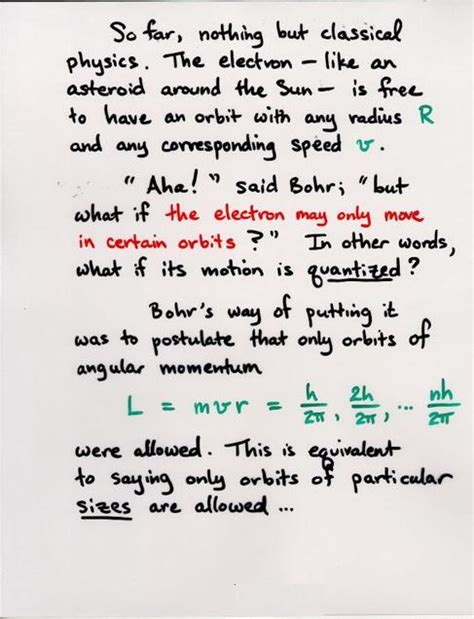 So far, nothing but classical
physics. The electron – like an
asteroid around the Sun – is free
to have an orbit with any radius R
and any corresponding speed v.
"Aha!" said Bohr; "but
what if the electron may only move
in certain orbits?" In other words,
what if its motion is quantized?
Bohr's way of putting it
was to postulate that only orbits of
angular momentum
L = mvr = h/2π, 2h/2π, ... nh/2π
were allowed. This is equivalent
to saying only orbits of particular
sizes are allowed ...